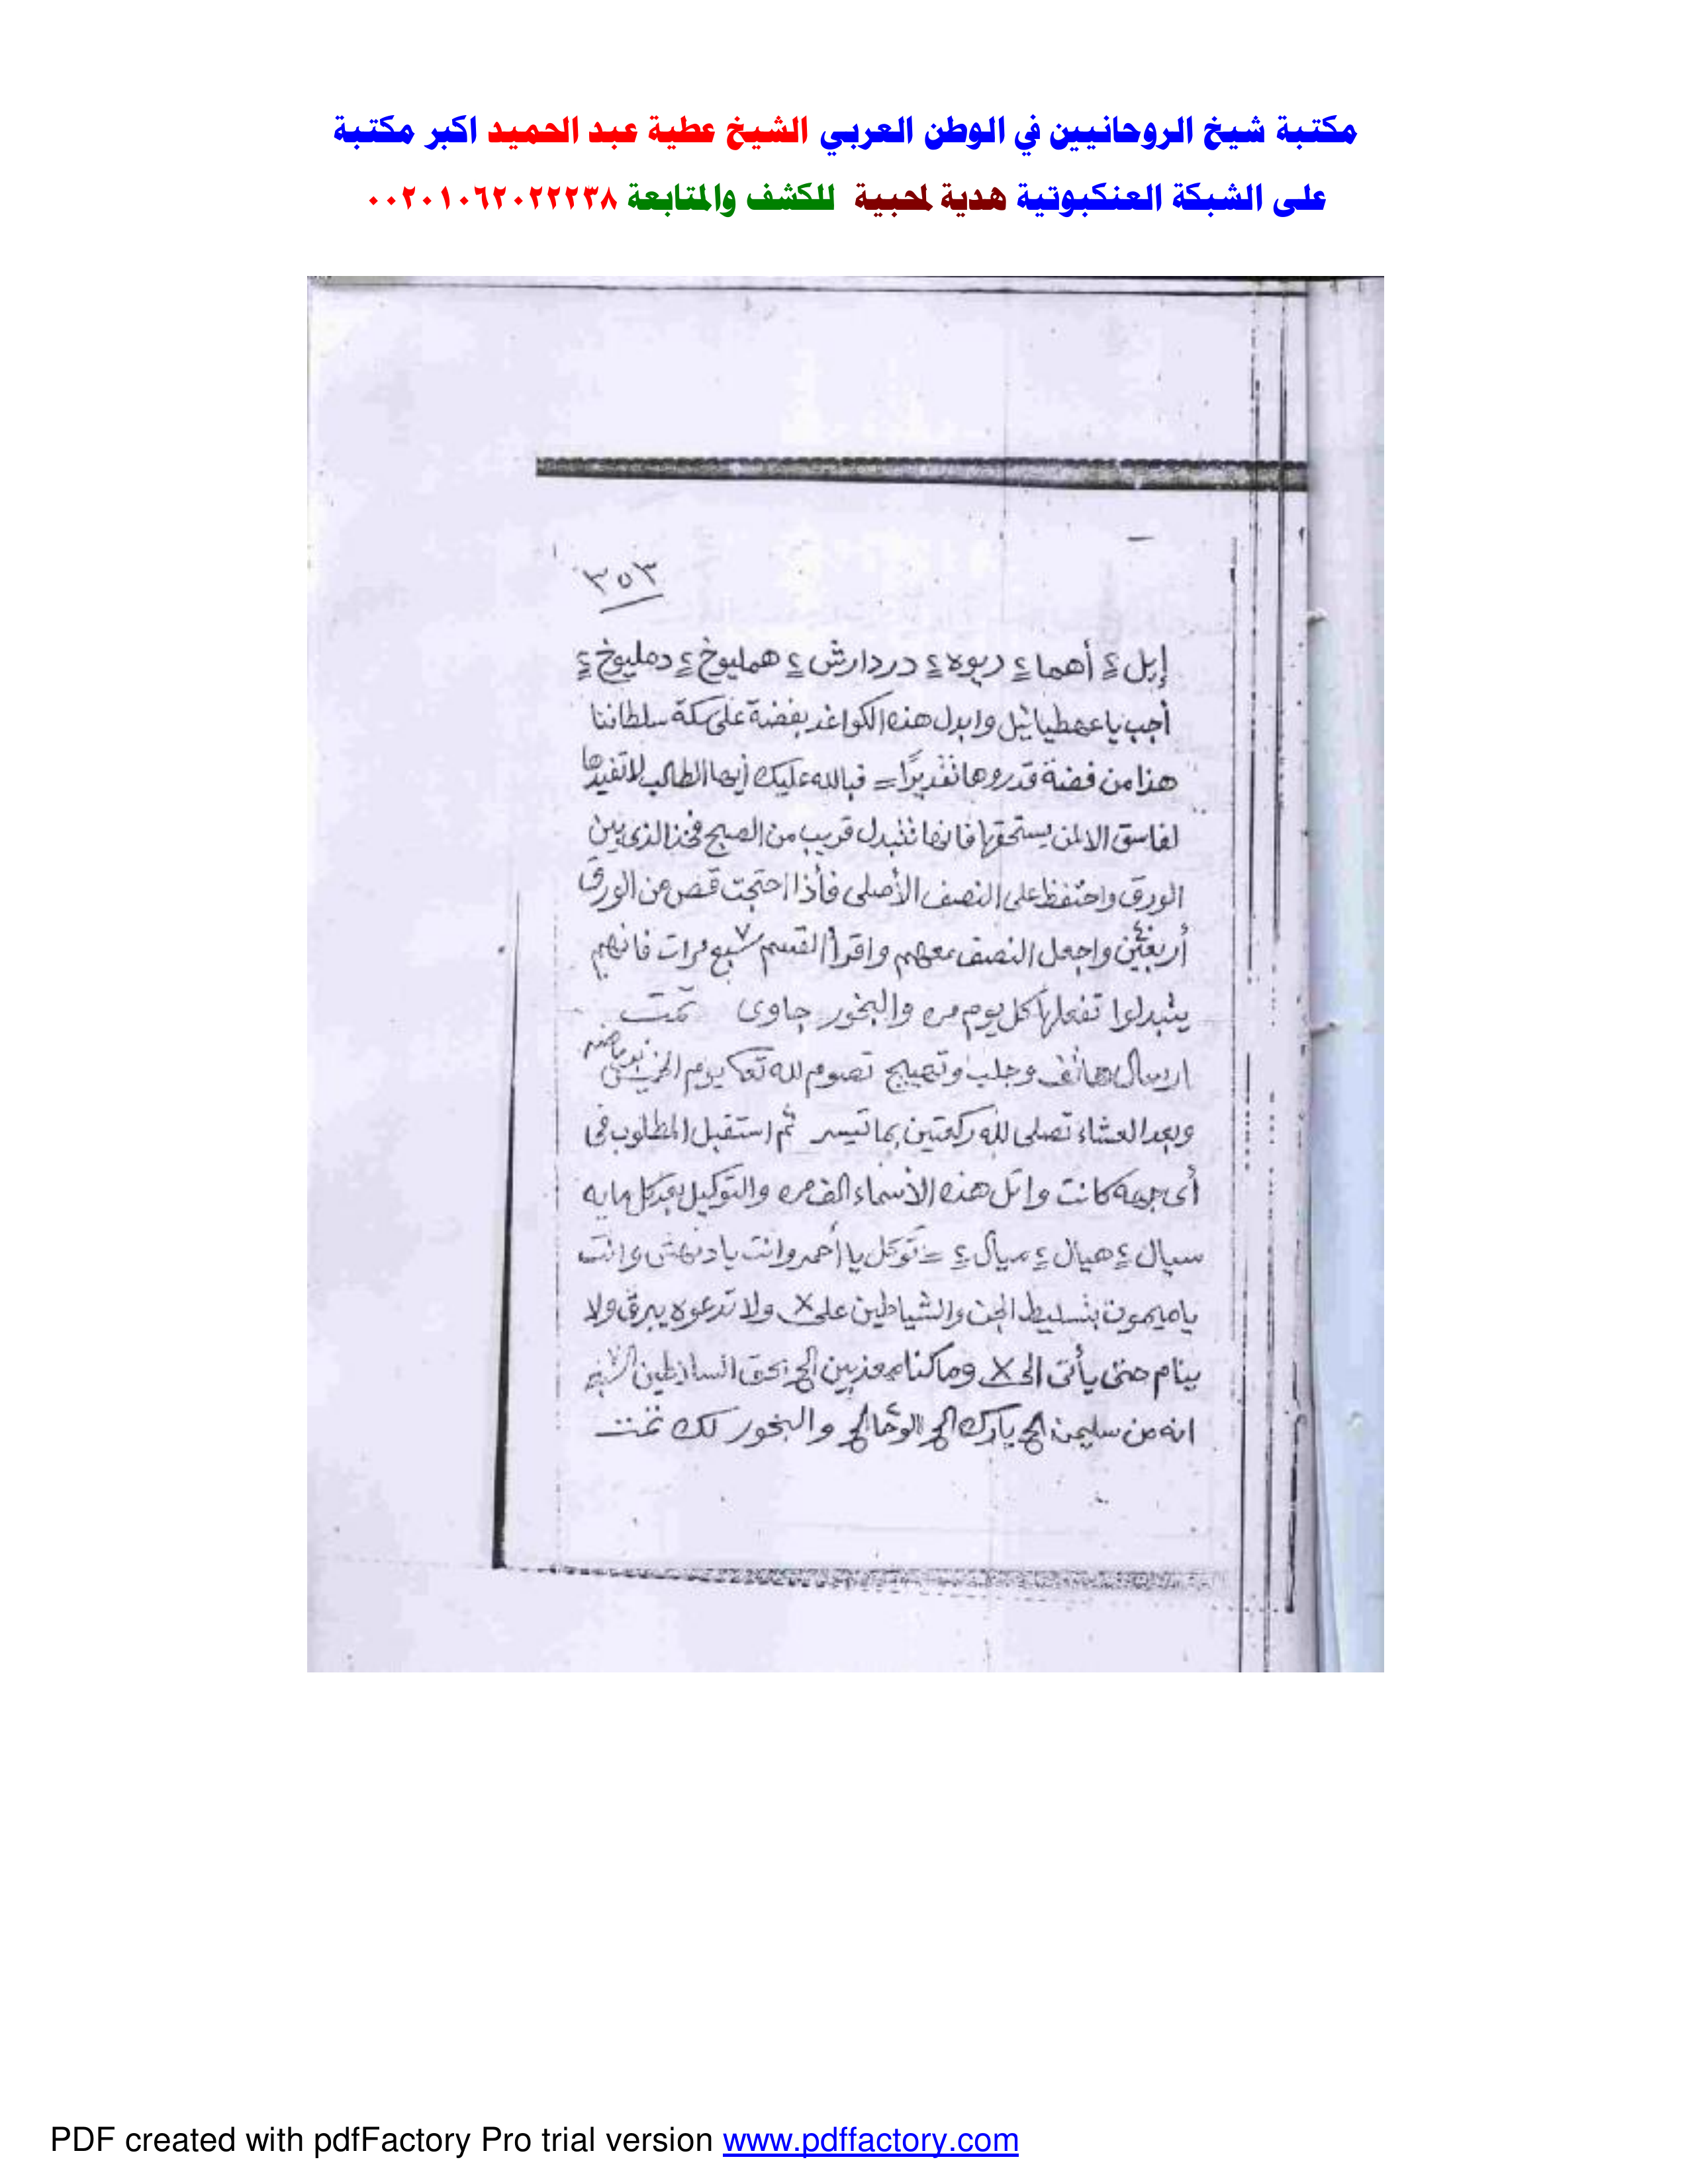 مكتبة شيخ الروحانيين في الوطن العربي الشيخ عطية عبد الحميد اكبر مكتبة
على الشبكة العنكبوتية هدية لمحبية للكشف والمتابعة ٠٠٢٠١٠٦٢٠٢٢٢٣٨
٣٥٣
إيل ٤ أهما ٤ ريوه ٤ دردارش ٤ همليوخ ٤ دمليوخ ٤
أجب يا عهطيائيل وابدل هذه الكواغد بفضة على سكة سلطاننا
هذا من فضة قدروها تقديرًا = فبالله عليك أيها الطالب لا تفيدها
لفاسق الا لمن يستحقها فانها تتبدل قريب من الصبح فخذ الذى بين
الورق واحتفظ على النصف الأصلى فأذا احتجت قص من الورق
أربعين واجعل النصف معهم واقرأ القسم ٧ سبع مرات فانهم
يتبدلوا تفعلها كل يوم مره والبخور جاوى تمت
ارسال هاتف وجلب وتهييج تصوم لله تعا يوم الخميس
وبعد العشاء تصلى لله ركعتين بما تيسر ثم استقبل المطلوب فى
أى جهه كانت واتل هذه الأسماء الف مره والتوكيل بعد كل مايه
سيال ٤ هيال ٤ ميال ٤ = توكل يا أحمر وانت يا دنهش وانت
يا ميمون بتسليط الجن والشياطين على X ولا تدعوه يبرق ولا
ينام حتى يأتى الى X وما كنا معذبين الخ بحق السلاطين
انه من سليمن الخ بارك الخ الوحا الخ والبخور لك تمت
PDF created with pdfFactory Pro trial version www.pdffactory.com